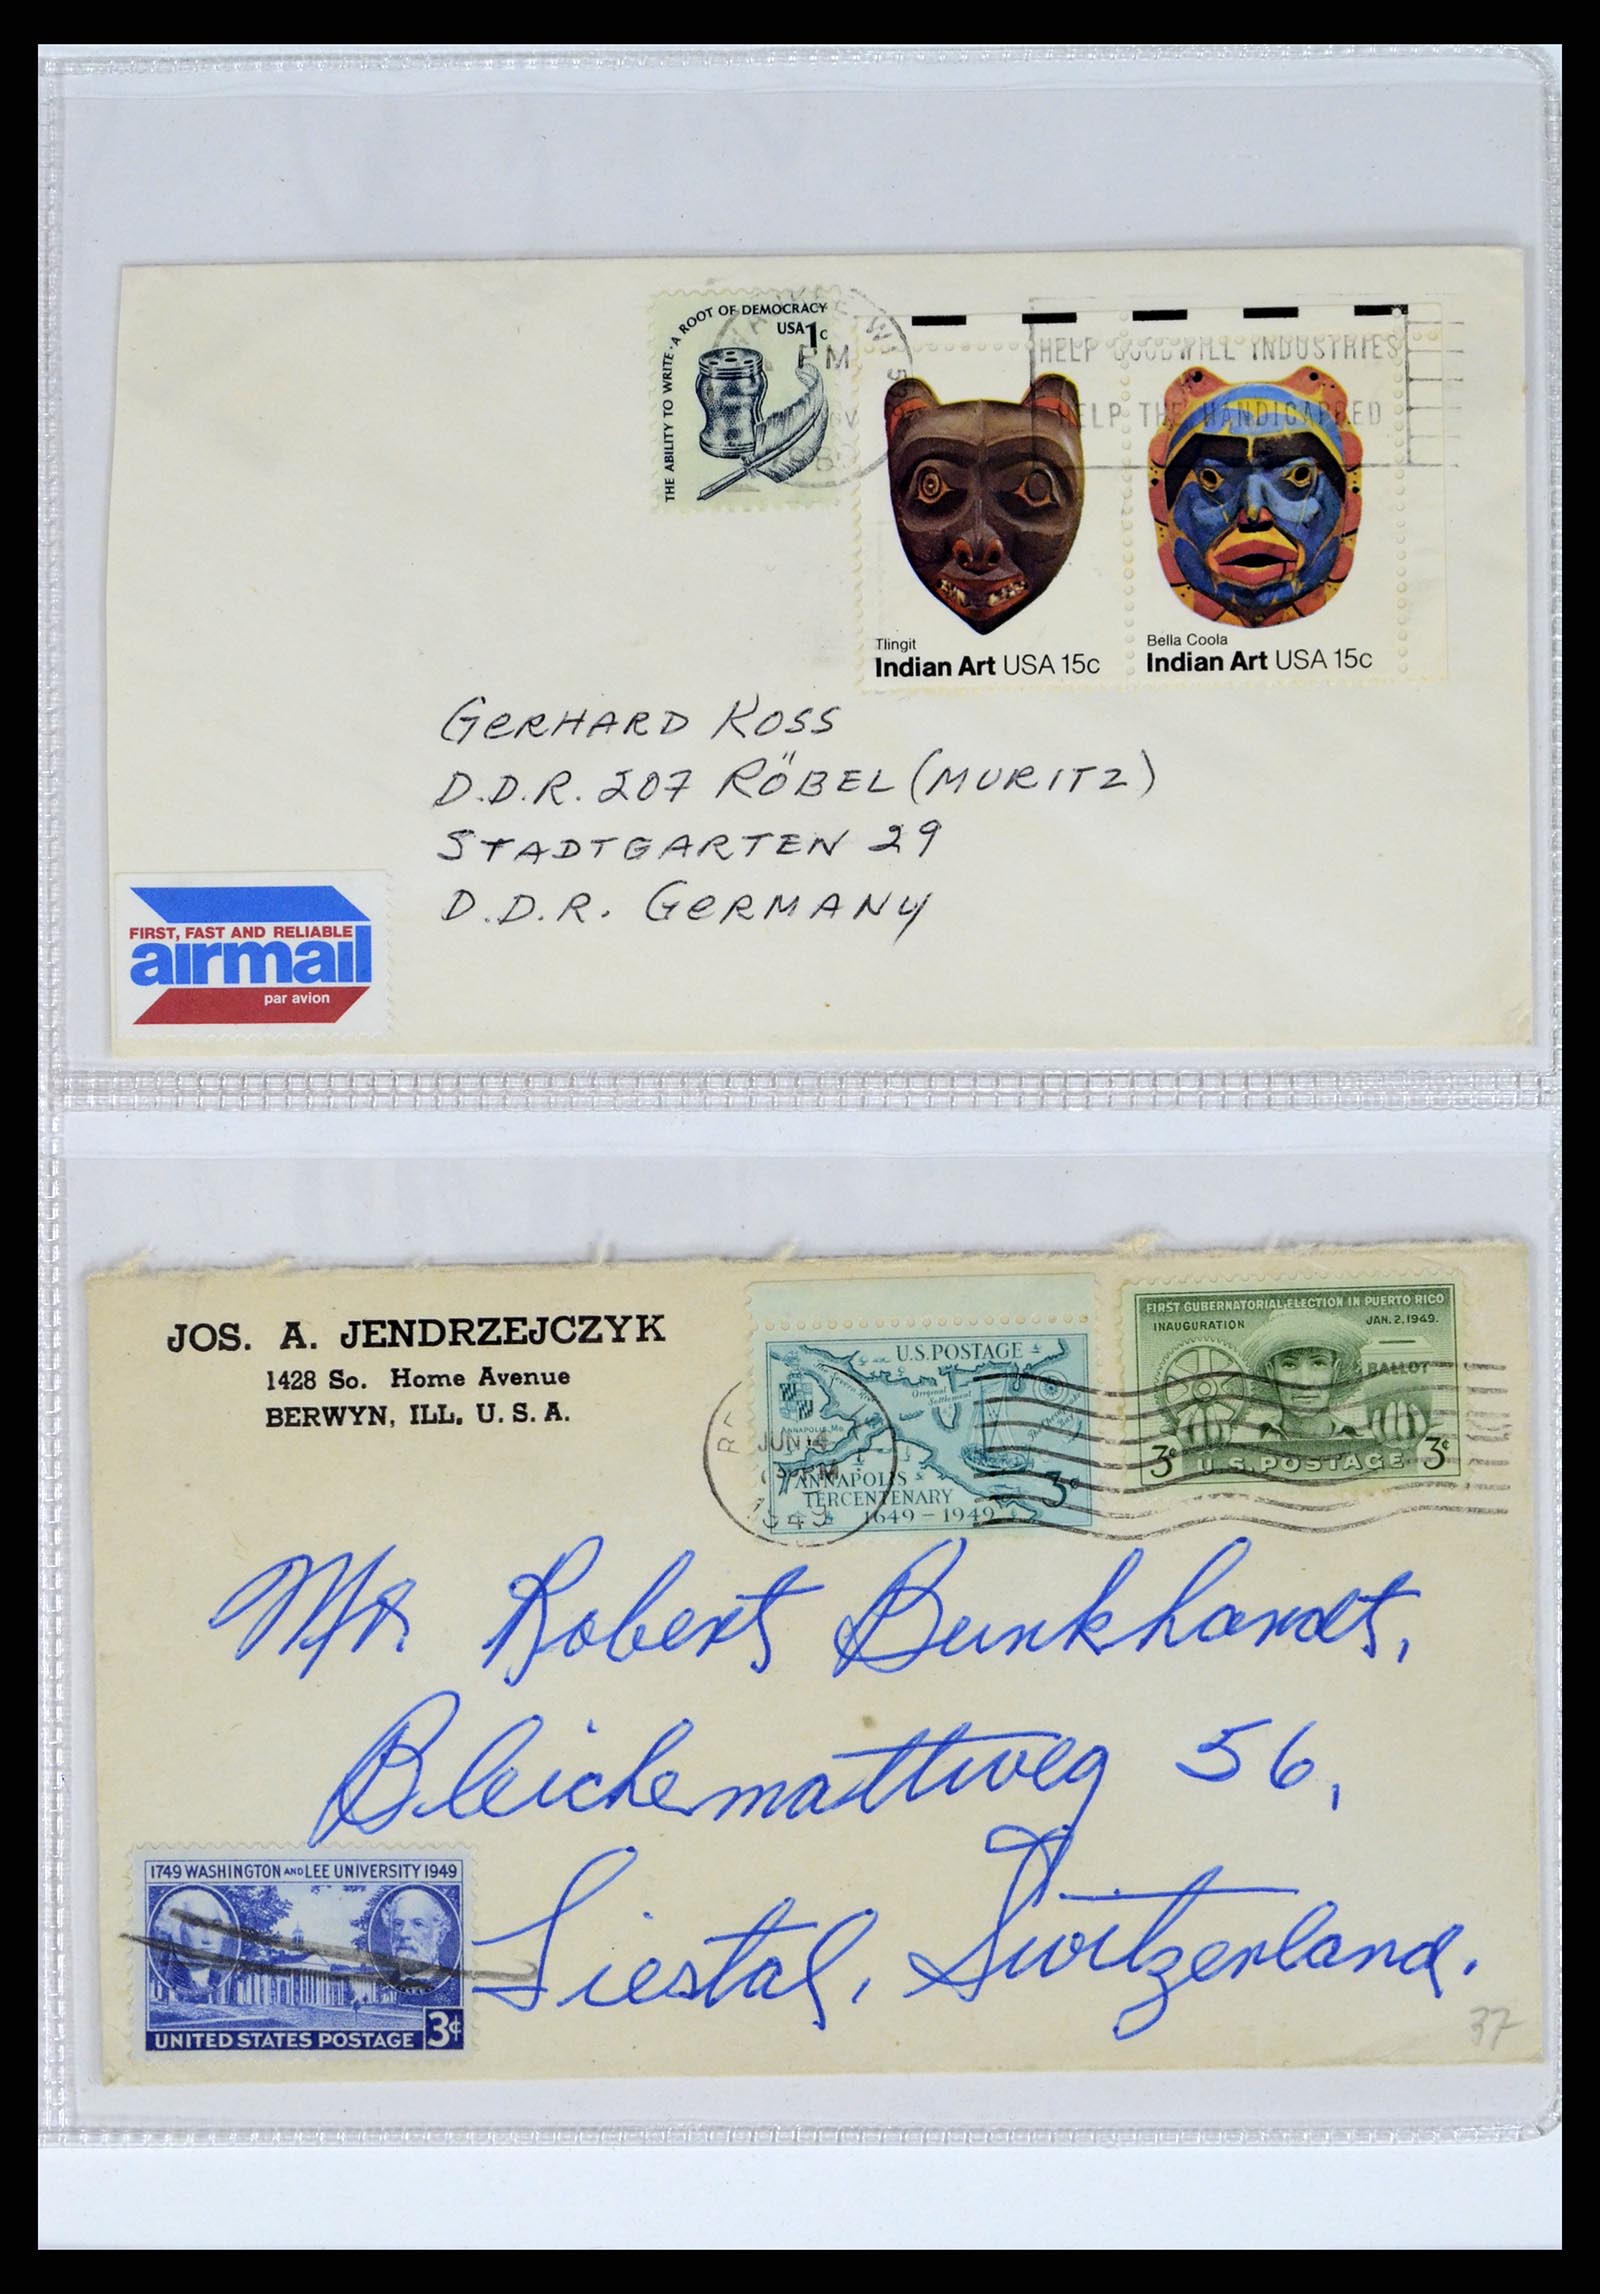 THE ABILITY TO WRITE · A ROOT OF DEMOCRACY
USA 1c
PM
HELP GOODWILL INDUSTRIES
HELP THE HANDICAPPED
Tlingit
Indian Art USA 15c
Bella Coola
Indian Art USA 15c
GERHARD KOSS
D.D.R. 207 RÖBEL (MURITZ)
STADTGARTEN 29
D.D.R. GERMANY
FIRST, FAST AND RELIABLE
airmail
par avion
JOS. A. JENDRZEJCZYK
1428 So. Home Avenue
BERWYN, ILL. U. S. A.
U.S. POSTAGE
Severn River
Original
Settlement
ANNAPOLIS, MD.
ANNAPOLIS
TERCENTENARY
1649 - 1949
3c
JUN 14
PM
1949
FIRST GUBERNATORIAL ELECTION IN PUERTO RICO
INAUGURATION JAN. 2, 1949.
BALLOT
3¢ U.S. POSTAGE 3¢
Mr. Robert Burkhardt,
Bleichemattweg 56,
Liestal, Switzerland.
1749 WASHINGTON AND LEE UNIVERSITY 1949
UNITED STATES POSTAGE 3¢
37